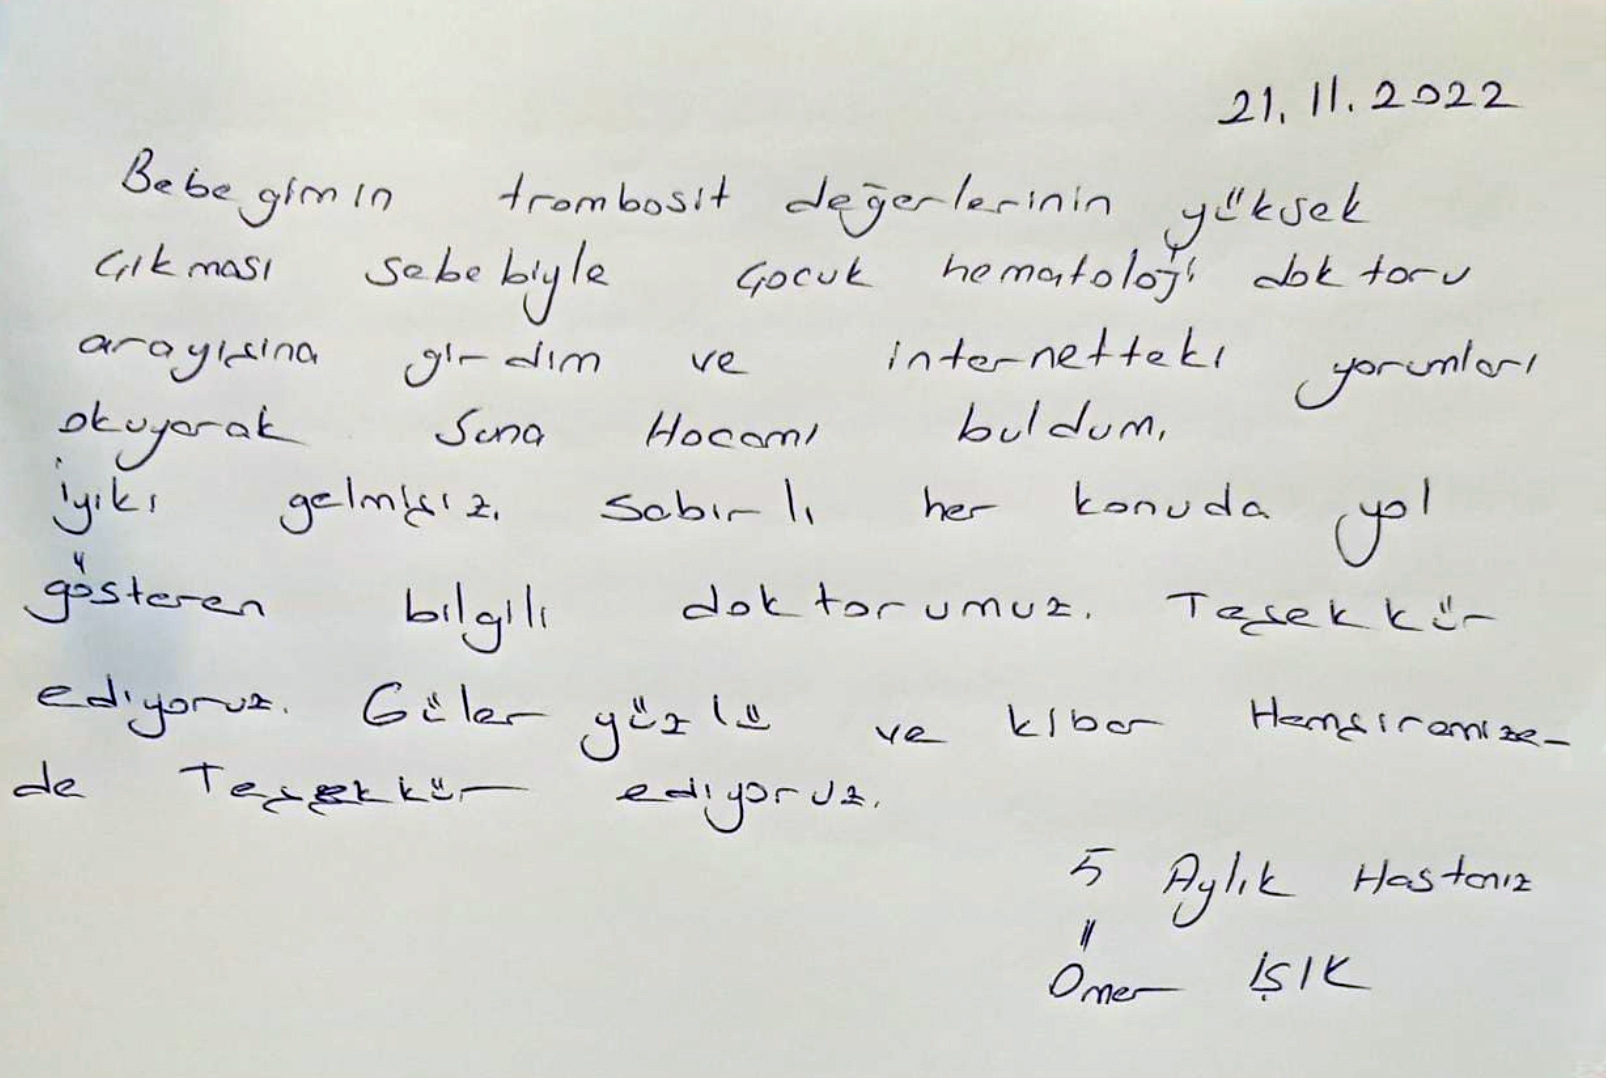 21.11.2022
Bebegimin trombosit değerlerinin yüksek
çıkması sebebiyle çocuk hematoloji doktoru
arayışına girdim ve internetteki yorumları
okuyarak Suna Hocamı buldum.
iyiki gelmişiz. Sabırlı her konuda yol
gösteren bilgili doktorumuz. Teşekkür
ediyoruz. Güler yüzlü ve kibar Hemşiremize-
de Teşekkür ediyoruz.
5 Aylık Hastanız
Ömer IŞIK